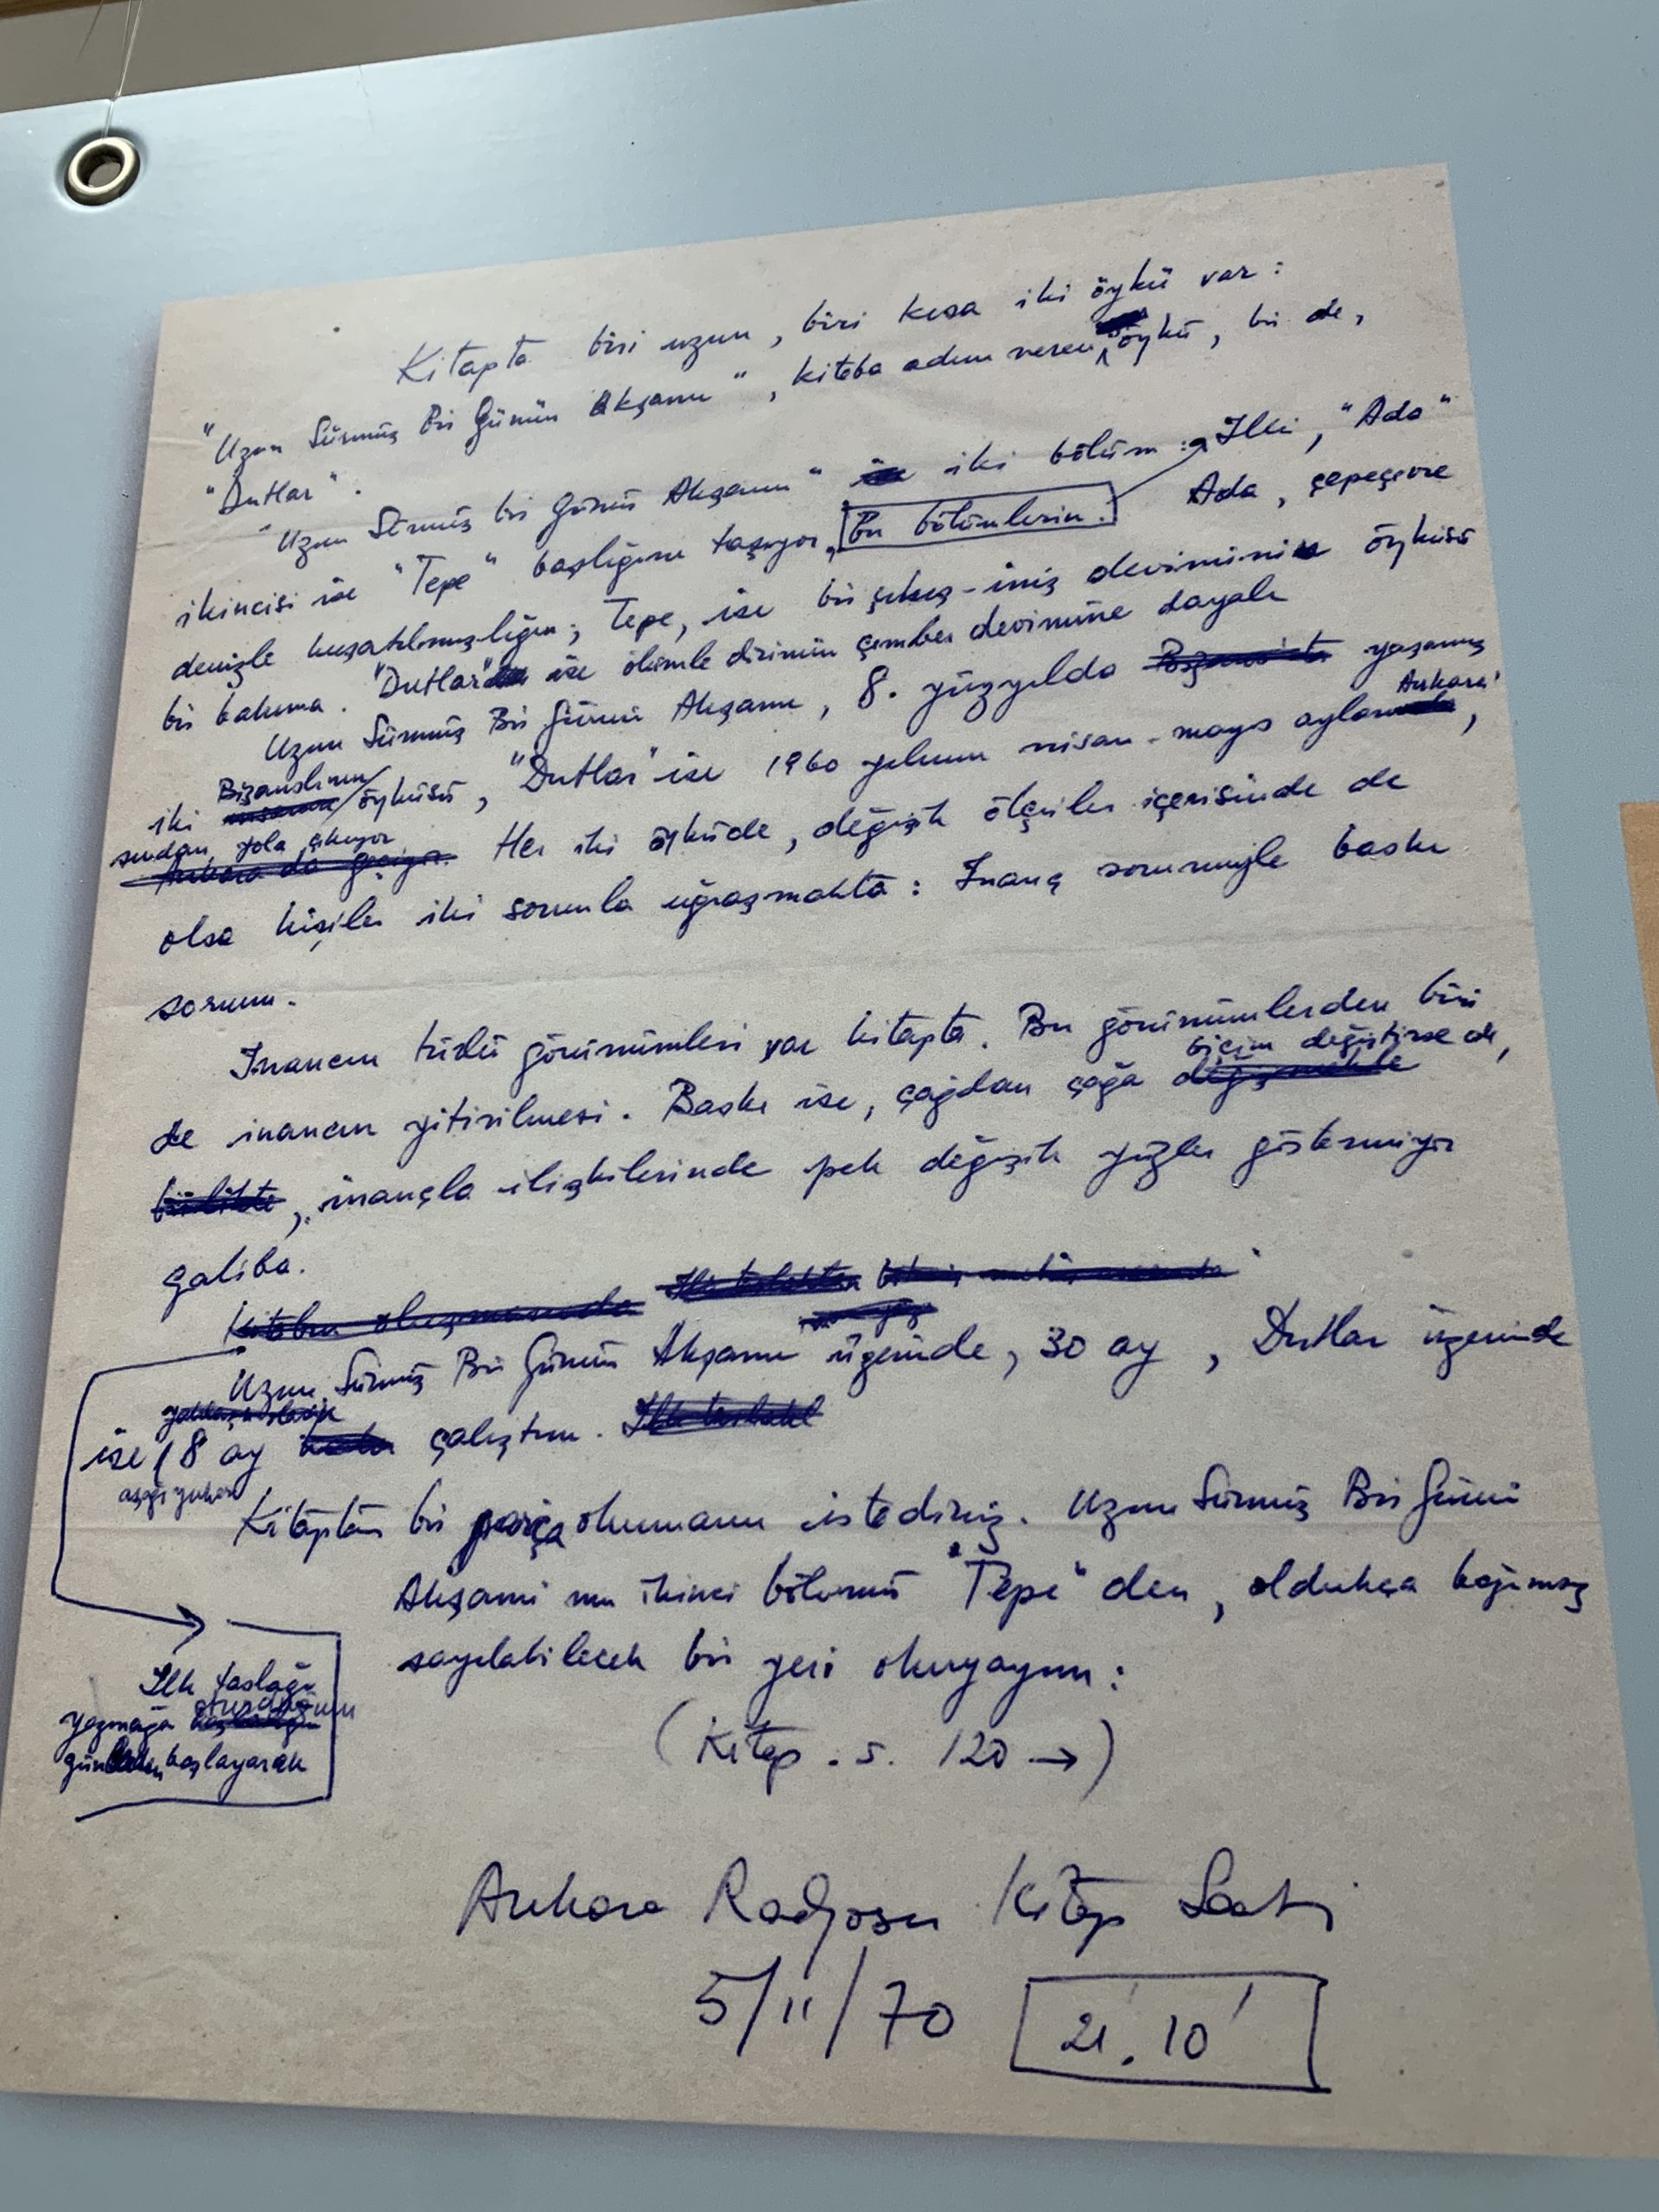 Kitapta biri uzun, biri kısa iki öykü var:
"Uzun Sürmüş Bir Günün Akşamı", kitaba adını veren öykü, bir de,
"Dutlar".
"Uzun Sürmüş bir Günün Akşamı" iki bölüm: İlki, "Ada"
ikincisi ise "Tepe" başlığını taşıyor. Bu bölümlerin. Ada, çepeçevre
denizle kuşatılmışlığın; Tepe, ise bir çıkış-iniş deviminin öyküsü
bir bakıma. "Dutlar" ise ölümle dirimin çember devimine dayalı
Uzun Sürmüş Bir Günün Akşamı, 8. yüzyılda yaşamış
Ankara'
iki Bizanslının öyküsü, "Dutlar" ise 1960 yılının nisan-mayıs ayları,
sından yola çıkıyor
Ankara'da geçiyor. Her iki öyküde, değişik ölçüler içerisinde de
olsa kişiler iki sorunla uğraşmakta: İnanç sorunuyle baskı
sorunu.
İnancın türlü görünümleri var kitapta. Bu görünümlerden biri
biçim değiştirse de,
de inancın yitirilmesi. Baskı ise, çağdan çağa değişmekle
birlikte, inançla ilişkilerinde pek değişik yüzler göstermiyor
galiba.
Kitabın oluşmasında
Uzun Sürmüş Bir Günün Akşamı üzerinde, 30 ay, Dutlar üzerinde
ise 18 ay çalıştım.
aşağı yukarı
Kitaptan bir parça okumamı istediniz. Uzun Sürmüş Bir Günün
Akşamı'nın ikinci bölümü "Tepe"den, oldukça bağımsız
sayılabilecek bir yeri okuyayım:
İlk taslağı
oturduğum
yazmağa
günden başlayarak
(Kitap. s. 120 →)
Ankara Radyosu Kitap Saati
5/11/70 21.10'